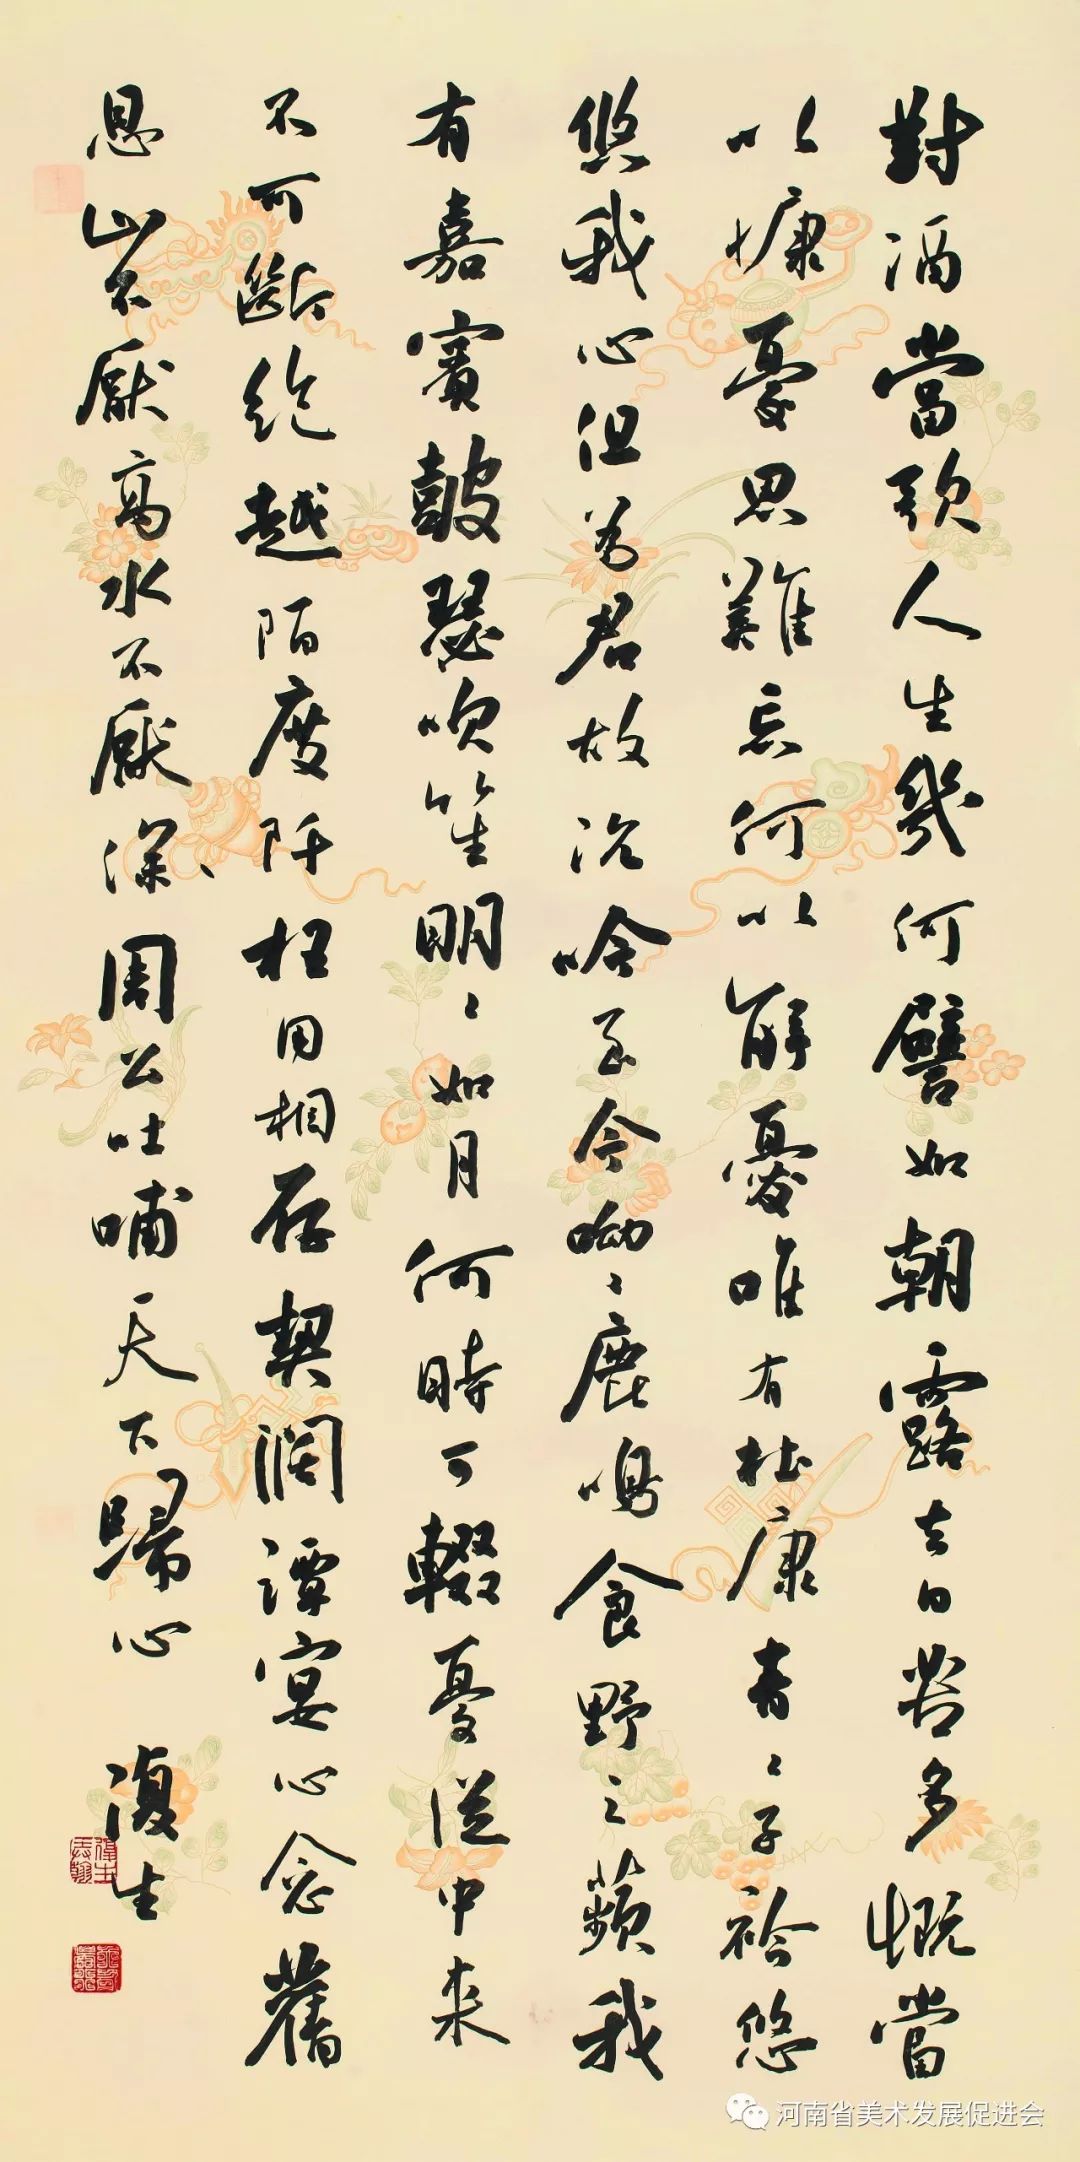 對酒當歌人生幾何譬如朝露去日苦多慨當
以慷憂思難忘何以解憂唯有杜康青〻子衿悠
悠我心但為君故沉吟至今呦〻鹿鳴食野之蘋我
有嘉賓皷瑟吹笙明〻如月何時可輟憂從中來
不可斷絕越陌度阡枉用相存契闊譚宴心念舊
恩山不厭高水不厭深周公吐哺天下歸心 復生
河南省美术发展促进会